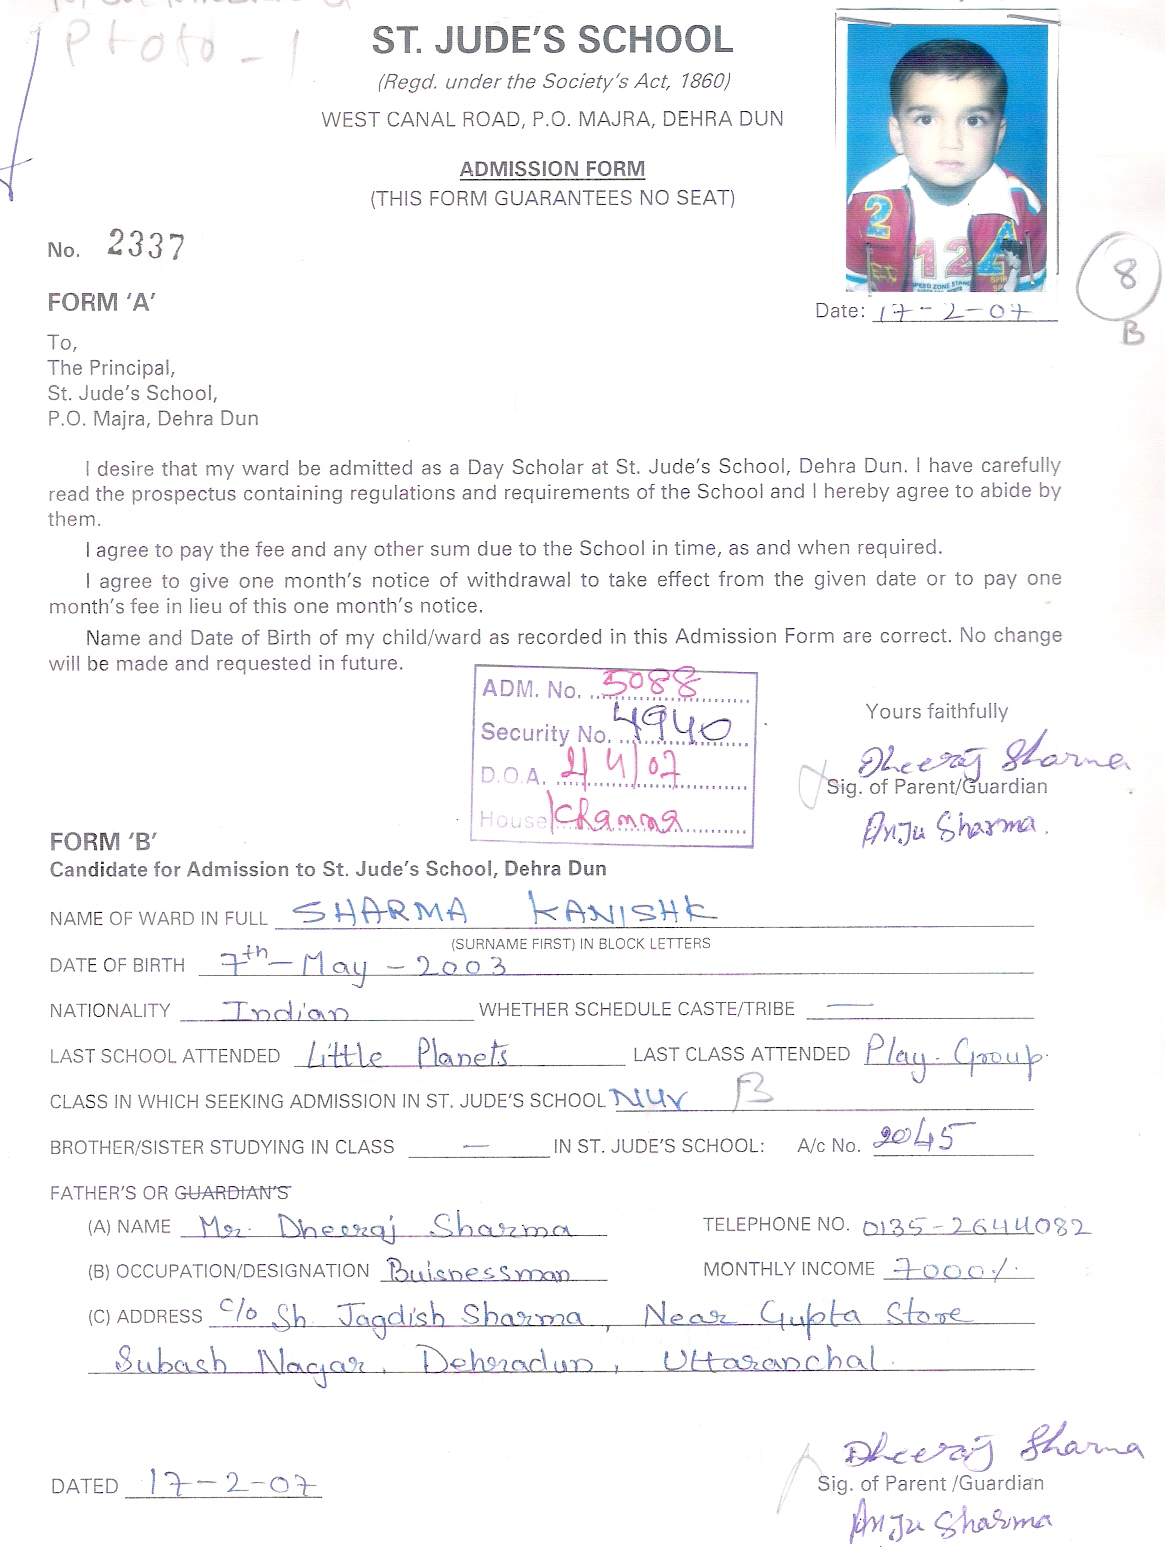 Photo - 1
ST. JUDE'S SCHOOL
(Regd. under the Society's Act, 1860)
WEST CANAL ROAD, P.O. MAJRA, DEHRA DUN
ADMISSION FORM
(THIS FORM GUARANTEES NO SEAT)
No. 2337
2
12
SPEED ZONE
Date: 17-2-07
8
B
FORM 'A'
To,
The Principal,
St. Jude's School,
P.O. Majra, Dehra Dun
I desire that my ward be admitted as a Day Scholar at St. Jude's School, Dehra Dun. I have carefully
read the prospectus containing regulations and requirements of the School and I hereby agree to abide by
them.
I agree to pay the fee and any other sum due to the School in time, as and when required.
I agree to give one month's notice of withdrawal to take effect from the given date or to pay one
month's fee in lieu of this one month's notice.
Name and Date of Birth of my child/ward as recorded in this Admission Form are correct. No change
will be made and requested in future.
ADM. No. 5088
Security No. 4940
D.O.A. 2/4/07
House Channa
Yours faithfully
Dheeraj Sharma
Sig. of Parent/Guardian
Anju Sharma.
FORM 'B'
Candidate for Admission to St. Jude's School, Dehra Dun
NAME OF WARD IN FULL SHARMA KANISHK
(SURNAME FIRST) IN BLOCK LETTERS
DATE OF BIRTH 7th - May - 2003
NATIONALITY Indian WHETHER SCHEDULE CASTE/TRIBE —
LAST SCHOOL ATTENDED Little Planets LAST CLASS ATTENDED Play-Group.
CLASS IN WHICH SEEKING ADMISSION IN ST. JUDE'S SCHOOL Nur B
BROTHER/SISTER STUDYING IN CLASS — IN ST. JUDE'S SCHOOL: A/c No. 2045
FATHER'S OR GUARDIAN'S
(A) NAME Mr. Dheeraj Sharma TELEPHONE NO. 0135-2644082
(B) OCCUPATION/DESIGNATION Buisnessman MONTHLY INCOME 7000/.
(C) ADDRESS C/o Sh Jagdish Sharma, Near Gupta Store
Subash Nagar, Dehradun, Uttaranchal.
Dheeraj Sharma
DATED 17-2-07 Sig. of Parent /Guardian
Anju Sharma